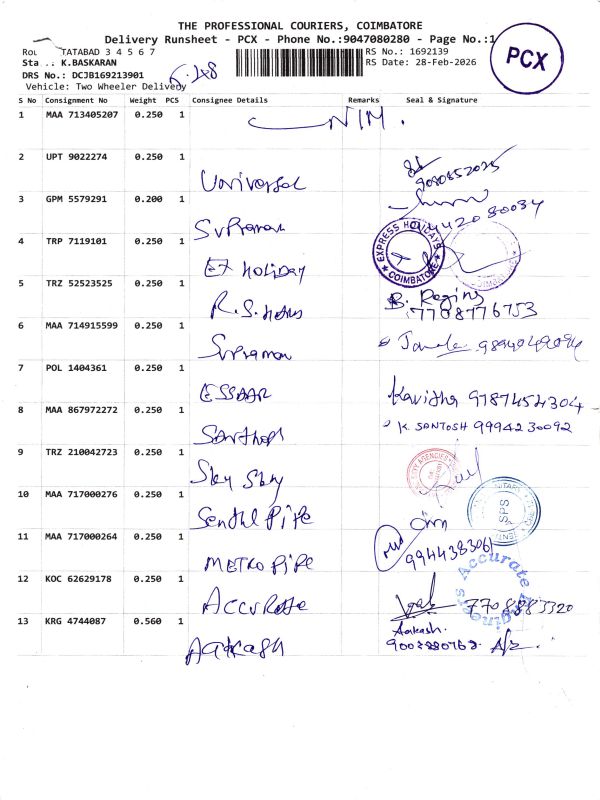 THE PROFESSIONAL COURIERS, COIMBATORE
Delivery Runsheet - PCX - Phone No.:9047080280 - Page No.:1
TATABAD 3 4 5 6 7
RS No.: 1692139
K.BASKARAN
RS Date: 28-Feb-2026
DRS No.: DCJB169213901
Vehicle: Two Wheeler Delivery
PCX
S No Consignment No Weight PCS Consignee Details Remarks Seal & Signature
1 MAA 713405207 0.250 1 NIM.
2 UPT 9022274 0.250 1 Universal
3 GPM 5579291 0.200 1
4 TRP 7119101 0.250 1 Ex Holiday
EXPRESS HOLIDAYS COIMBATORE
5 TRZ 52523525 0.250 1 B. Regins
7708776753
6 MAA 714915599 0.250 1
7 POL 1404361 0.250 1 ESSAAR Kavitha 9787454304
8 MAA 867972272 0.250 1 Santhosh K. SANTOSH 9994230092
9 TRZ 210042723 0.250 1 Sky Sky
10 MAA 717000276 0.250 1 Senthil Pipe
SPS
11 MAA 717000264 0.250 1 METRO PIPE 9944383061
12 KOC 62629178 0.250 1 Accurate
Accurate
13 KRG 4744087 0.560 1 Aakash Aakash.